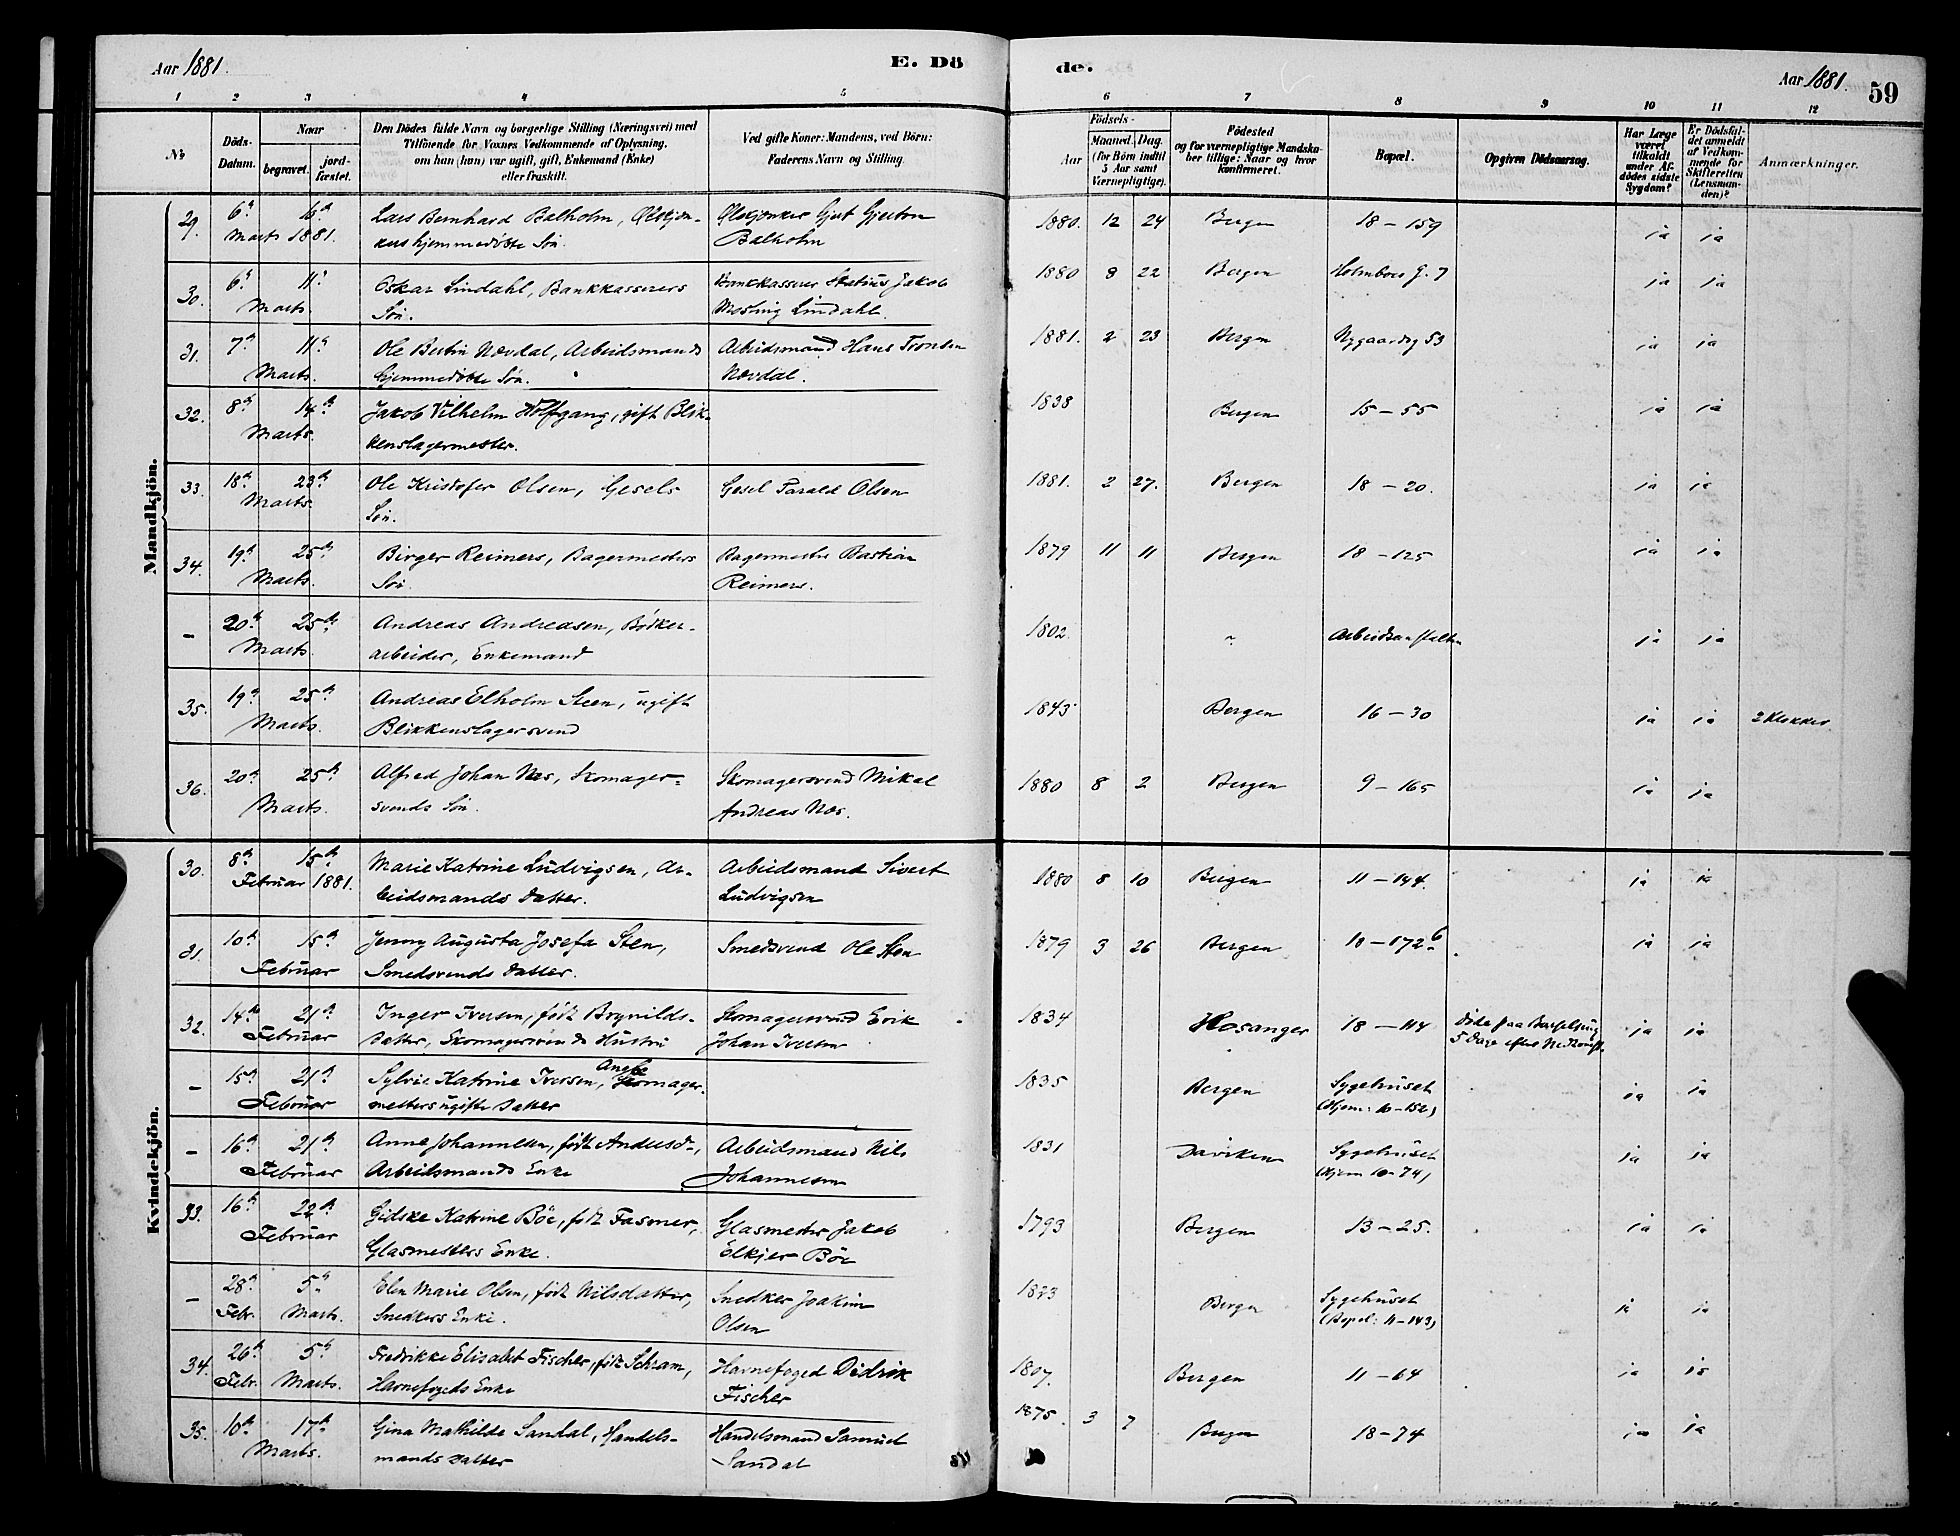 Aar 1881.
E. Dö
de.
Aar 1881.
59
1 2 3 4 5 6 7 8 9 10 11 12
No
Döds-Datum.
Naar
begravet.
jordfæstet.
Den Dödes fulde Navn og borgerlige Stilling (Næringsvei) med
Tilföiende for Voxnes Vedkommende af Oplysning,
om han (hun) var ugift, gift, Enkemand (Enke)
eller fraskilt.
Ved gifte Koner: Mandens, ved Börn:
Faderens Navn og Stilling.
Födsels-
Aar
Maaned. Dag.
(for Börn indtil
5 Aar samt
Værnepligtige).
Födested
og for værnepligtige Mandska-
ber tillige: Naar og hvor
konfirmeret.
Bopæl.
Opgiven Dödsaarsag.
Har Læge
været
tilkaldt
under Af-
dödes sidste
Sygdom?
Er Dödsfal-
det anmeldt
af Vedkom-
mende for
Skifteretten
(Lensman-
den)?
Anmærkninger.
Mandkjön.
29. 6te 16de Lars Bernhard Balholm, Ølskjæn- Ølskjænker Gjert Gjertsen 1880. 12 24 Bergen 18 - 159 ja ja
Marts 1881. kers hjemmedøbte Søn. Balholm
30. 6te 11te Oskar Lindahl, Bankkasserers Bankkasserer Statius Jakob 1880 9 22 Bergen Holmboes G. 7 ja ja
Marts. Søn. Mosling Lindahl.
31. 7de 11te Ole Bertin Nævdal, Arbeidsmands Arbeidsmand Hans Tronsen 1881. 2 23 Bergen Nygaardsg 53 ja ja
Marts. hjemmedøbte Søn. Nævdal.
32. 8de 14de Jakob Vilhelm Wolfgang, gift Blik- 1838 Bergen 15 - 55 ja ja
Marts. kenslagermester.
33. 18de 23de Ole Kristofer Olsen, Gesels Gesel Tarald Olsen 1881. 2 27. Bergen 18 - 20. ja ja
Marts. Søn.
34. 19de 25de Birger Reimers, Bagermesters Bagermester Bastian 1879 11 11 Bergen 18 - 125 ja ja
Marts. Søn. Reimers.
- 20de 25de Andreas Andreasen, Bødker- 1802. " Arbeidsanstalten ja ja
Marts. arbeider, Enkemand
35. 19de 25de Andreas Elholm Steen, ugift 1843 Bergen 16 - 30 ja ja 2 Klokker
Marts. Blikkenslagersvend
36. 20de 25de Alfred Johan Næs, Skomager- Skomagersvend Mikal 1880 8 2 Bergen 9 - 165 ja ja
Marts. svends Søn. Andreas Næs.
Kvindekjön.
30. 8de 15de Marie Katrine Ludvigsen, Ar- Arbeidsmand Sivert 1880 8 10 Bergen 11 - 144. ja ja
Februar 1881. beidsmands Datter. Ludvigsen
31. 10de 15de Jenny Augusta Josefa Sten, Smedsvend Ole Sten 1879 3 26 Bergen 18 - 172 b ja ja
Februar Smedsvends Datter.
32. 14de 21de Inger Iversen, født Brynilds- Skomagersvend Erik 1834 Hosanger 18 - 114 Døde paa Barselseng ja ja
Februar datter, Skomagersvends Hustru Johan Iversen 5 Dage efter Nedkomst.
- 15de 21de Sylvie Katrine Iversen, Skomager- 1835 Bergen Sygehuset ja ja
Februar mesters ugifte Datter (Hjem: 10 - 152)
- 16de 21de Anne Johannesen, født Andersd-, Arbeidsmand Nils 1831 Daviken Sygehuset ja ja
Februar Arbeidsmands Enke Johannesen (Hjem 10 - 74)
33. 16de 22de Gidske Katrine Böe, født Fasmer, Glasmester Jakob 1793 Bergen 13 - 25. ja ja
Februar Glasmesters Enke. Elkjer Böe
- 28de 5te Elen Marie Olsen, født Nilsdatter, Snedker Joakim 1823 Bergen Sygehuset ja ja
Febr. Marts. Snedkers Enke. Olsen (Bopæl: 11 - 143)
34. 26de 5te Fredrikke Elisabet Fischer, født Schram, Havnefoged Didrik 1807. Bergen 11 - 64 ja ja
Febr. Marts. Havnefogeds Enke Fischer
35. 10de 17de Gina Mathilde Sandal, Handels- Handelsmand Samuel 1875. 3 7 Bergen 18 - 74 ja ja
Marts. mands Datter Sandal